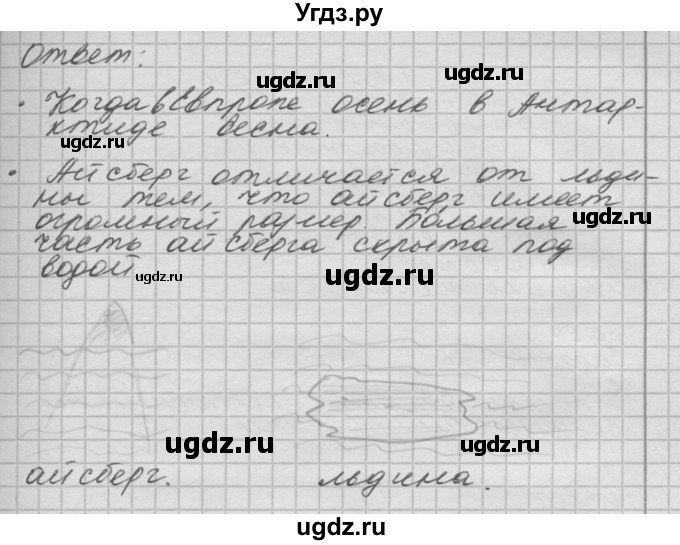 Угдз.ру
Ответ:
ugdz.ru
ugdz.ru
• Когда в Европе осень в Антар-
ктиде весна.
ugdz.ru
• Айсберг отличается от льди-
ны тем, что айсберг имеет
ugdz.ru
огромный размер. Большая
ugdz.ru
часть айсберга скрыта под
ugdz.ru
водой
ugdz.ru
ugdz.ru
ugdz.ru
ugdz.ru
ugdz.ru
айсберг.
льдина.
ugdz.ru
ugdz.ru